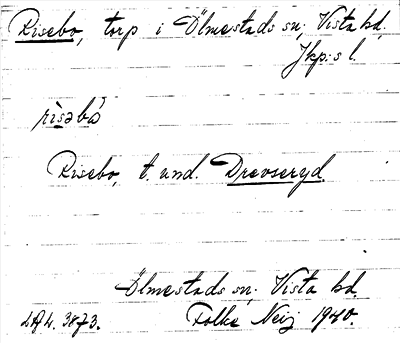 Risebo, torp i Ölmestads sn, Vista hd,
Jkp:s l.
rìsəbó
Risebo, t. und. Drevseryd.
Ölmestads sn; Vista hd.
LAL. 3873. Folke Neij 1940.